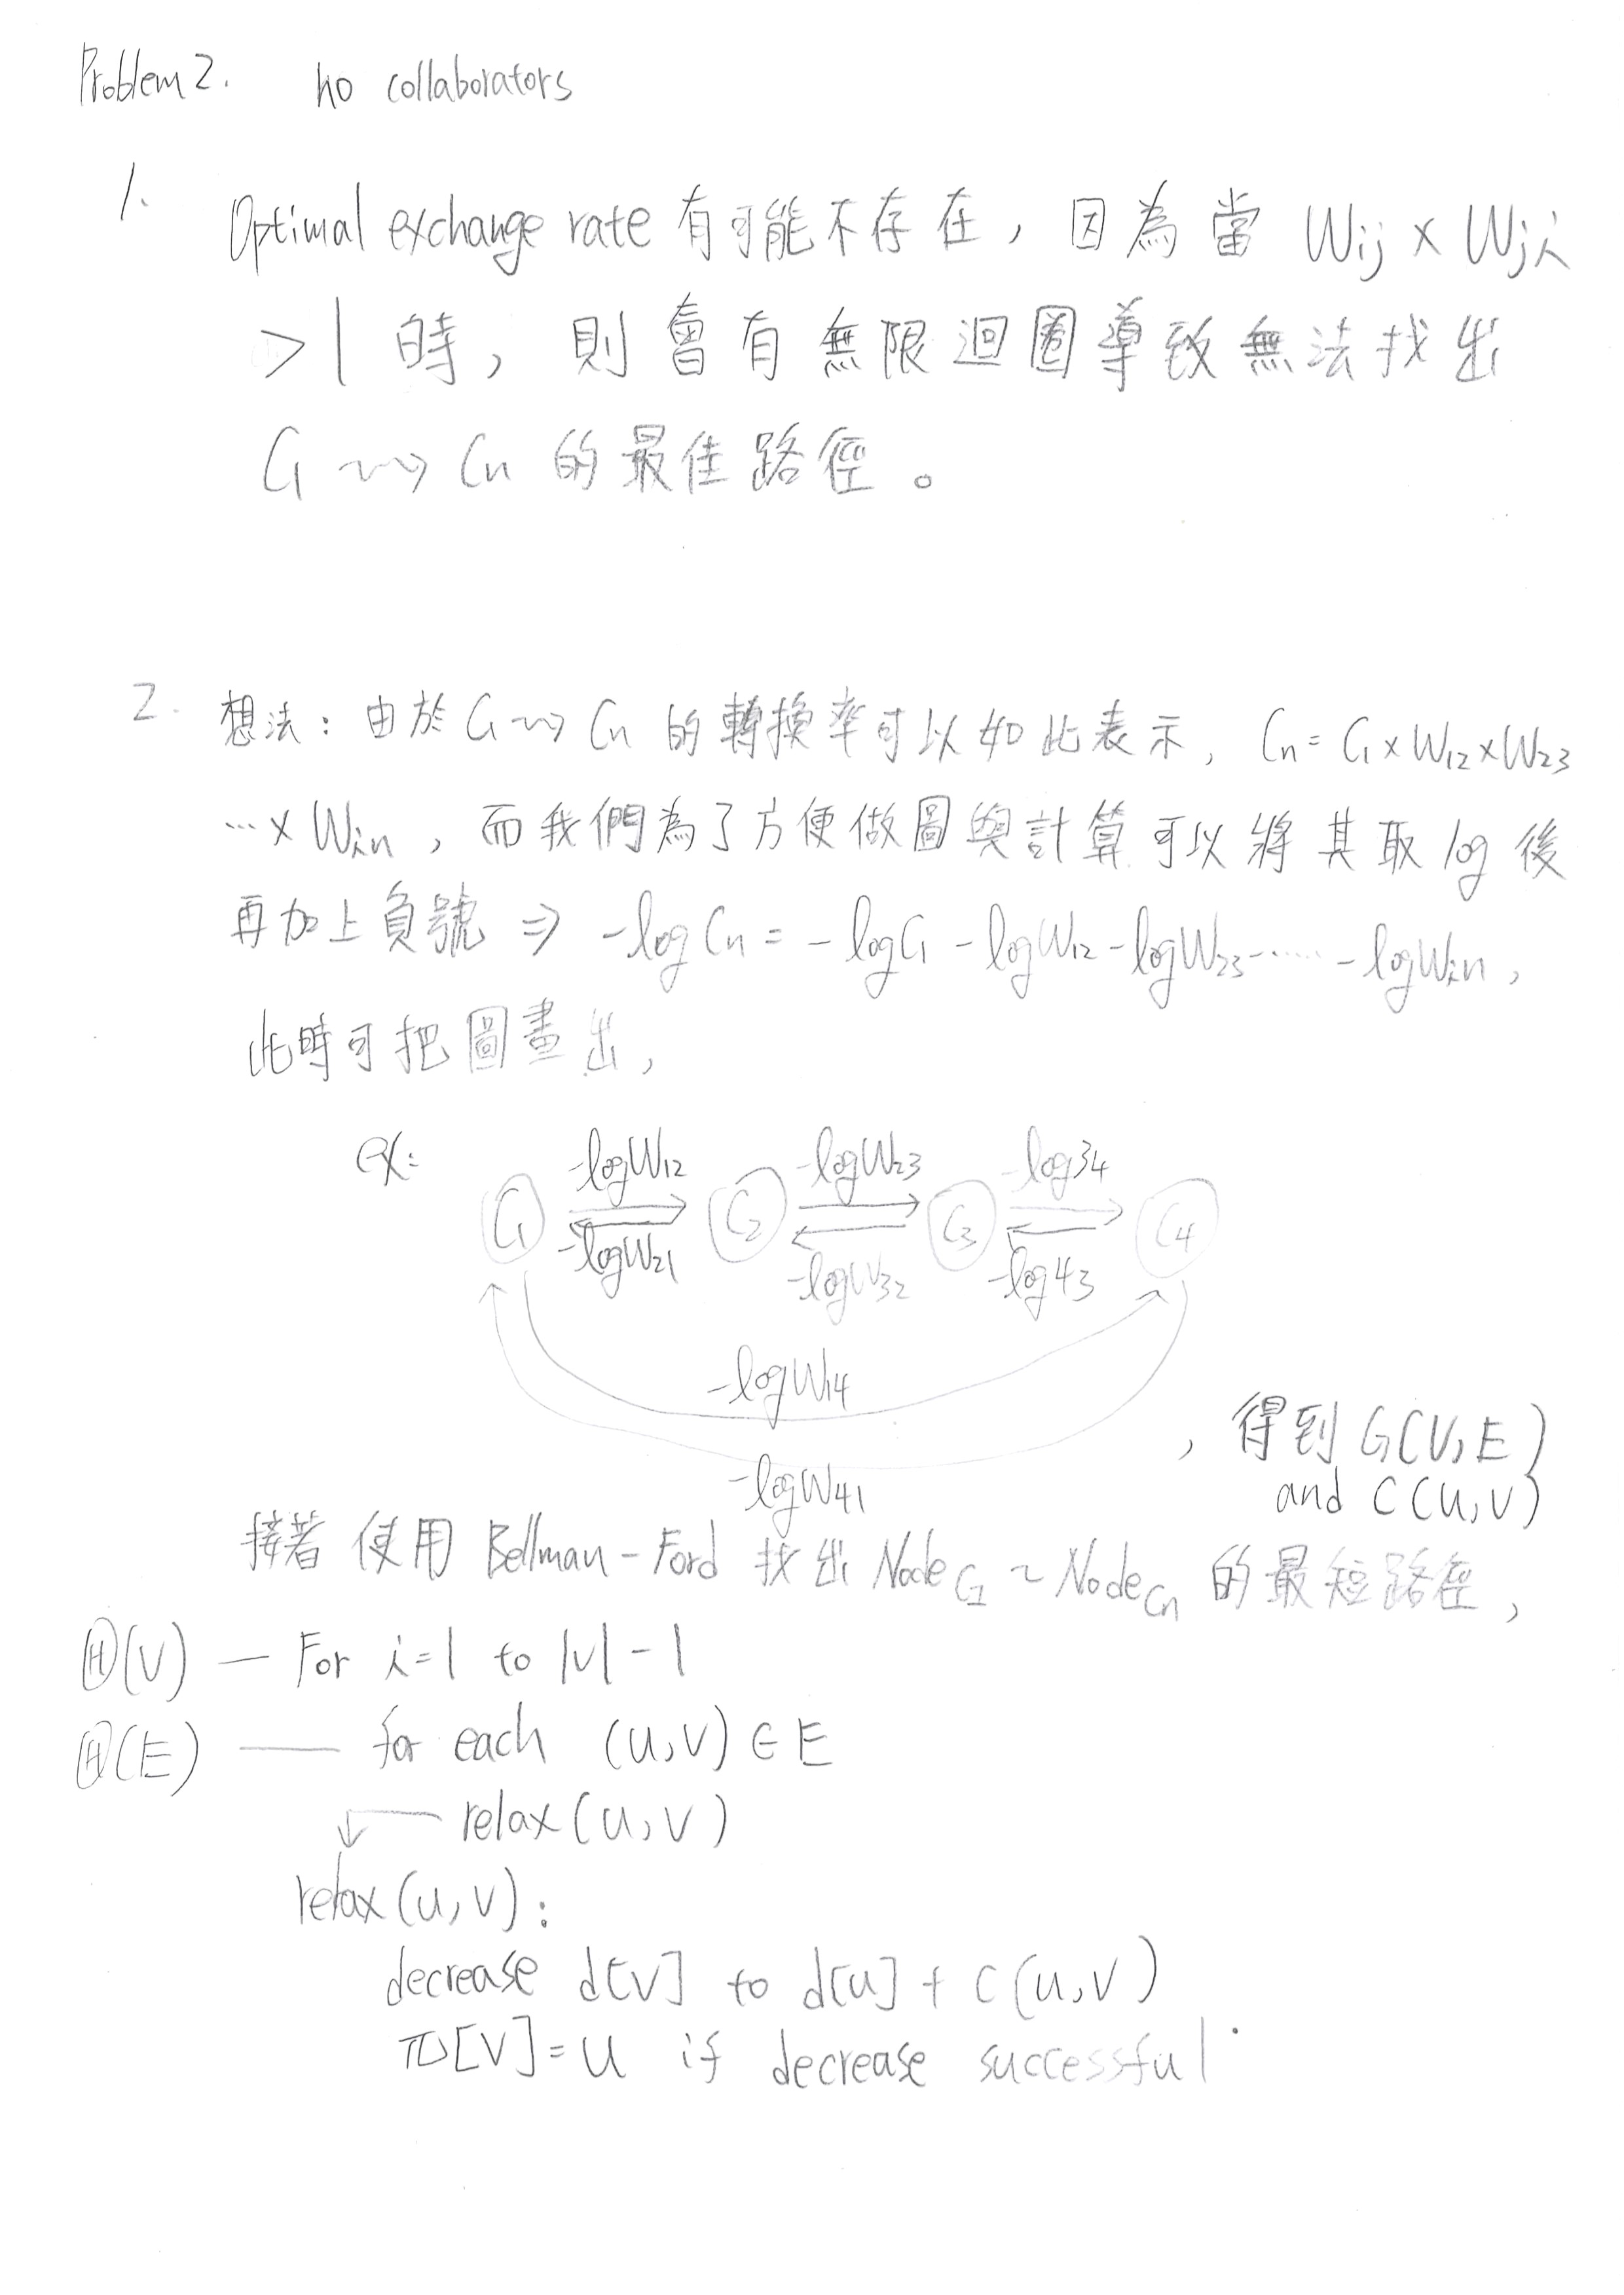 Problem 2. no collaborators
1. Optimal exchange rate 有可能不存在, 因為當 Wij × Wji
>1 時, 則會有無限迴圈導致無法找出
C1 ⇝ Cn 的最佳路徑。
2. 想法: 由於 C1 ⇝ Cn 的轉換率可以如此表示, Cn = C1 × W12 × W23
… × Win, 而我們為了方便做圖與計算可以將其取 log 後
再加上負號 ⇒ -log Cn = -log C1 - log W12 - log W23 - …… - log Win,
此時可把圖畫出,
ex:
-log W12 -log W23 -log 34
C1 C2 C3 C4
-log W21 -log W32 -log 43
-log W14
-log W41
, 得到 G(V,E)
and C(u,v)
接著使用 Bellman-Ford 找出 Node C1 ~ Node Cn 的最短路徑,
Ⓗ(V) — For i=1 to |V|-1
Ⓗ(E) — for each (u,v) ∈ E
relax(u,v)
relax(u,v):
decrease d[v] to d[u] + C(u,v)
π[v]=u if decrease successful.